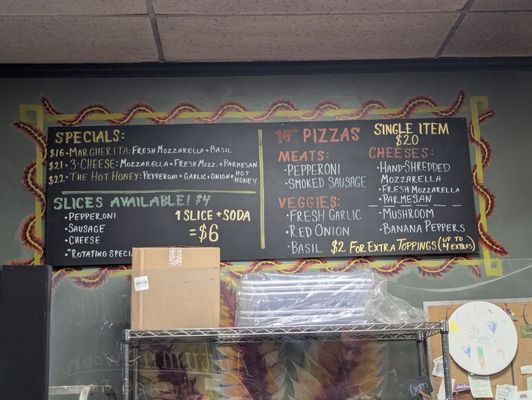 SPECIALS:
$16 - MARGHERITA: FRESH MOZZARELLA + BASIL
$21 - 3-CHEESE: MOZZARELLA + FRESH MOZZ. + PARMESAN
$22 - THE HOT HONEY: PEPPERONI + GARLIC + ONION + HOT HONEY
SLICES AVAILABLE! $4
• PEPPERONI
• SAUSAGE
• CHEESE
• ROTATING SPECIAL
1 SLICE + SODA
= $6
PIZZAS
SINGLE ITEM
$20
MEATS:
• PEPPERONI
• SMOKED SAUSAGE
VEGGIES:
• FRESH GARLIC
• RED ONION
• BASIL
CHEESES:
• HAND-SHREDDED
MOZZARELLA
• FRESH MOZZARELLA
• PARMESAN
• MUSHROOM
• BANANA PEPPERS
$2 FOR EXTRA TOPPINGS (UP TO 4 EXTRA)